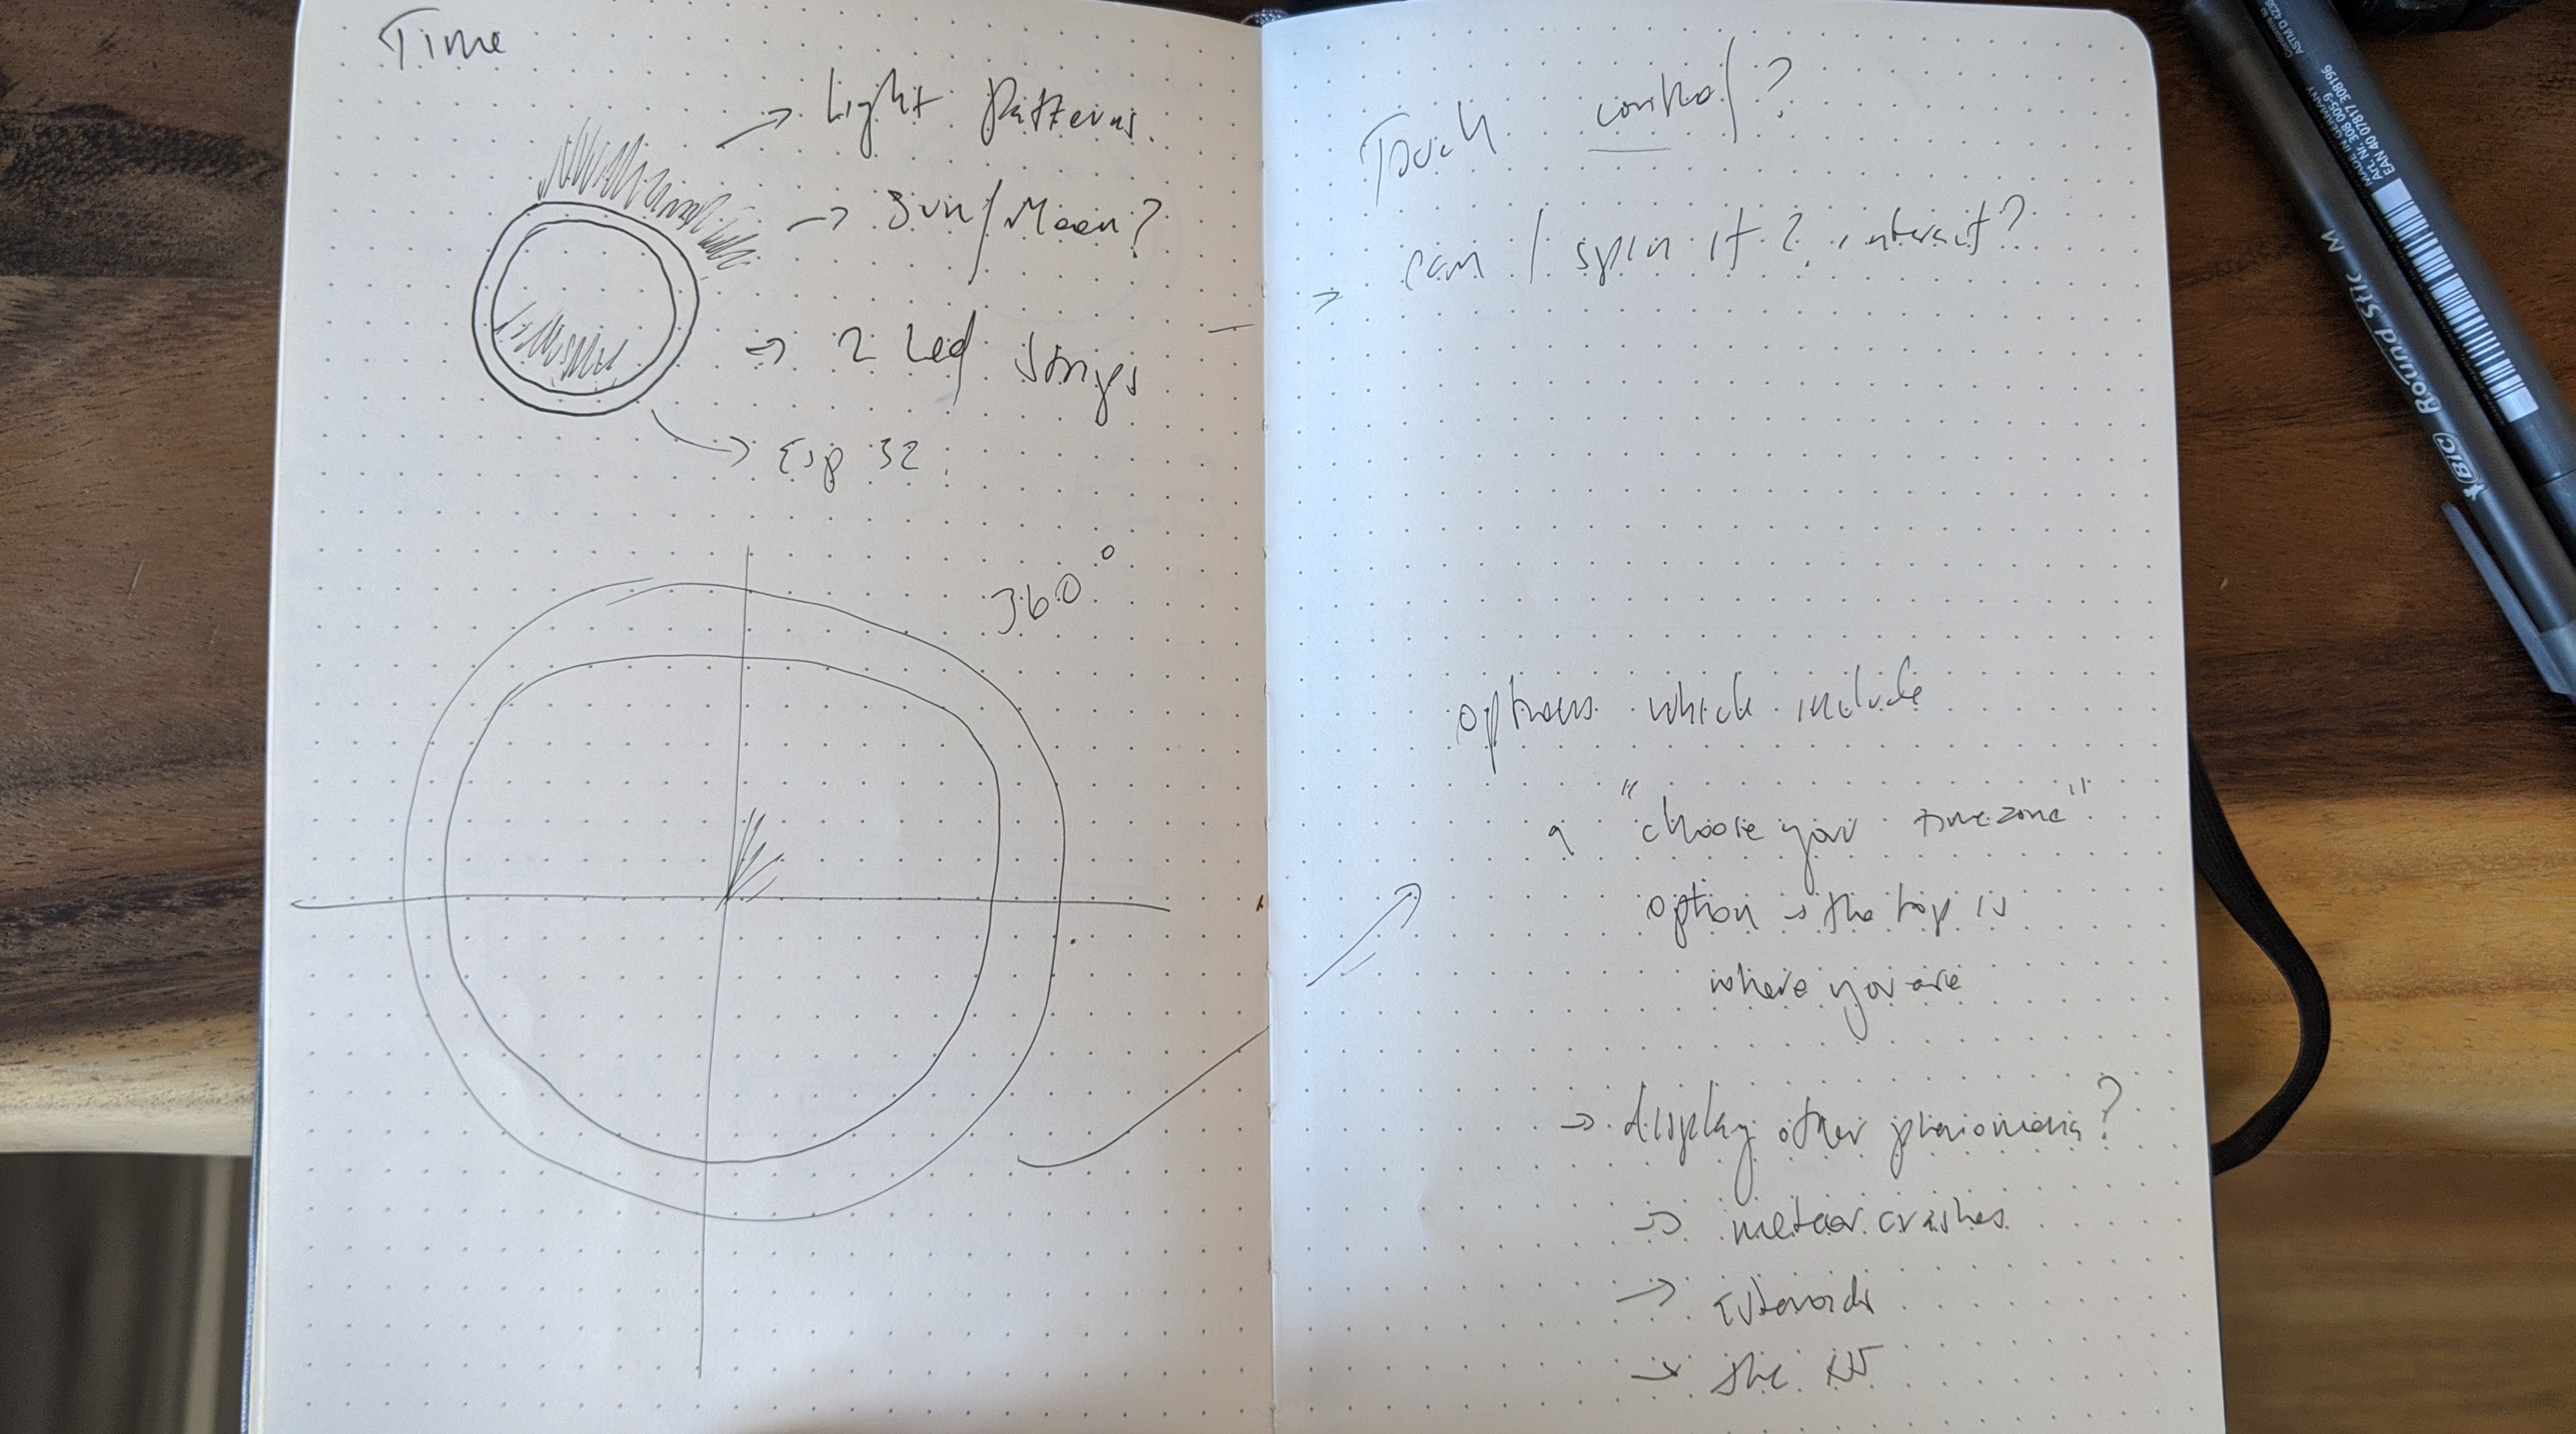 Time
→ Light Patterns
→ Sun/Moon?
→ 2 Led Strips
→ Esp 32
360°
Touch control?
→ can I spin it? interact?
options which include
"choose your timezone"
option → the top is
where you are
→ display other phenomena?
→ meteor crashes
→ asteroids
→ the
ASTM D 4236
MADE IN GERMANY
Art. Nr. 308 005-9
EAN 40 07817 308196
BIC Round Stic M